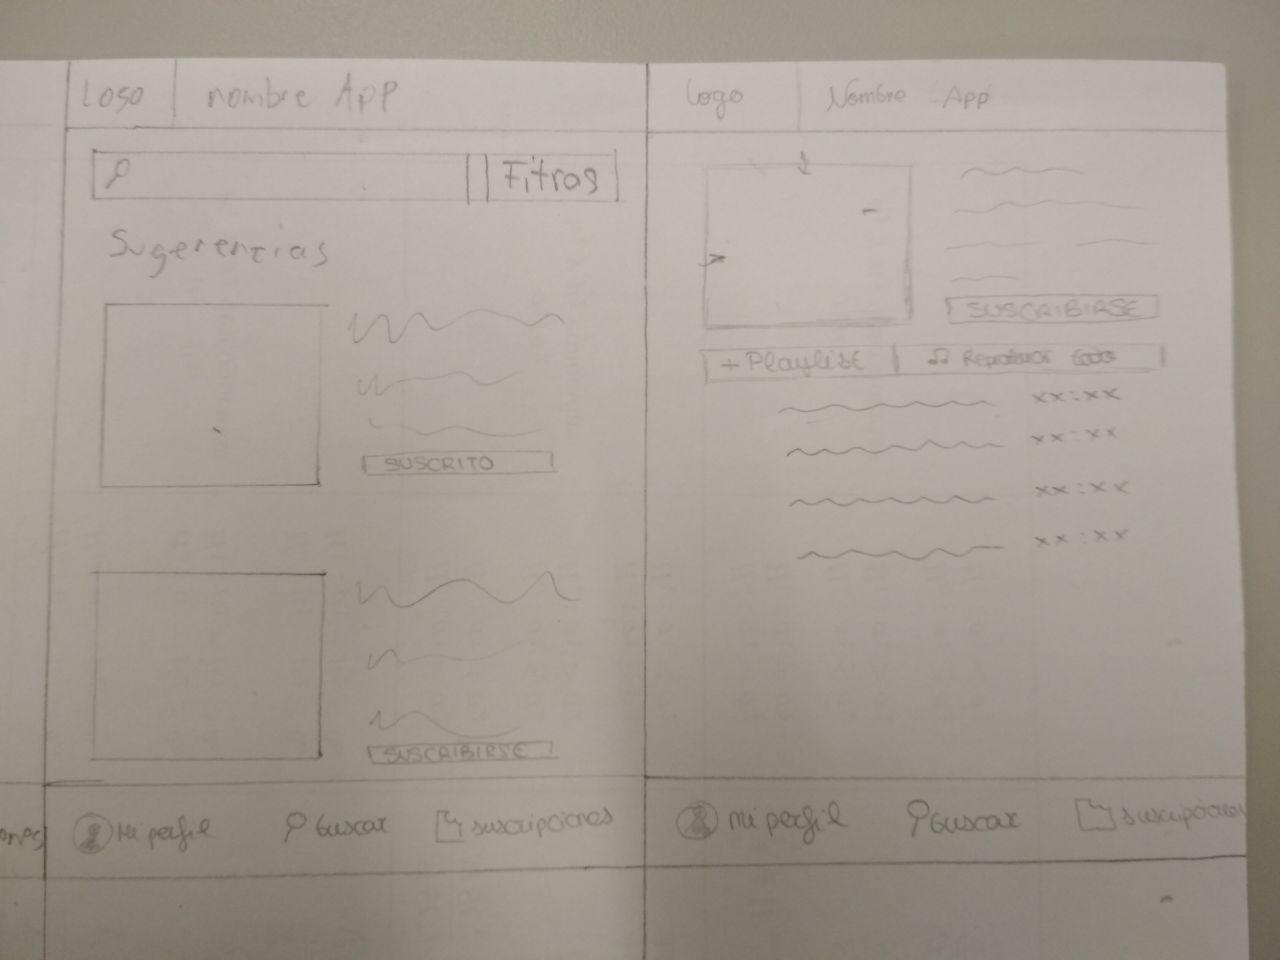 Logo nombre App
Fitros
Sugerencias
SUSCRITO
SUSCRIBIRSE
Mi perfil Buscar suscripciones
ones
Logo Nombre App
SUSCRIBIRSE
+ Playlist Reproducir todo
xx:xx
xx:xx
xx:xx
xx:xx
mi perfil Buscar suscripciones